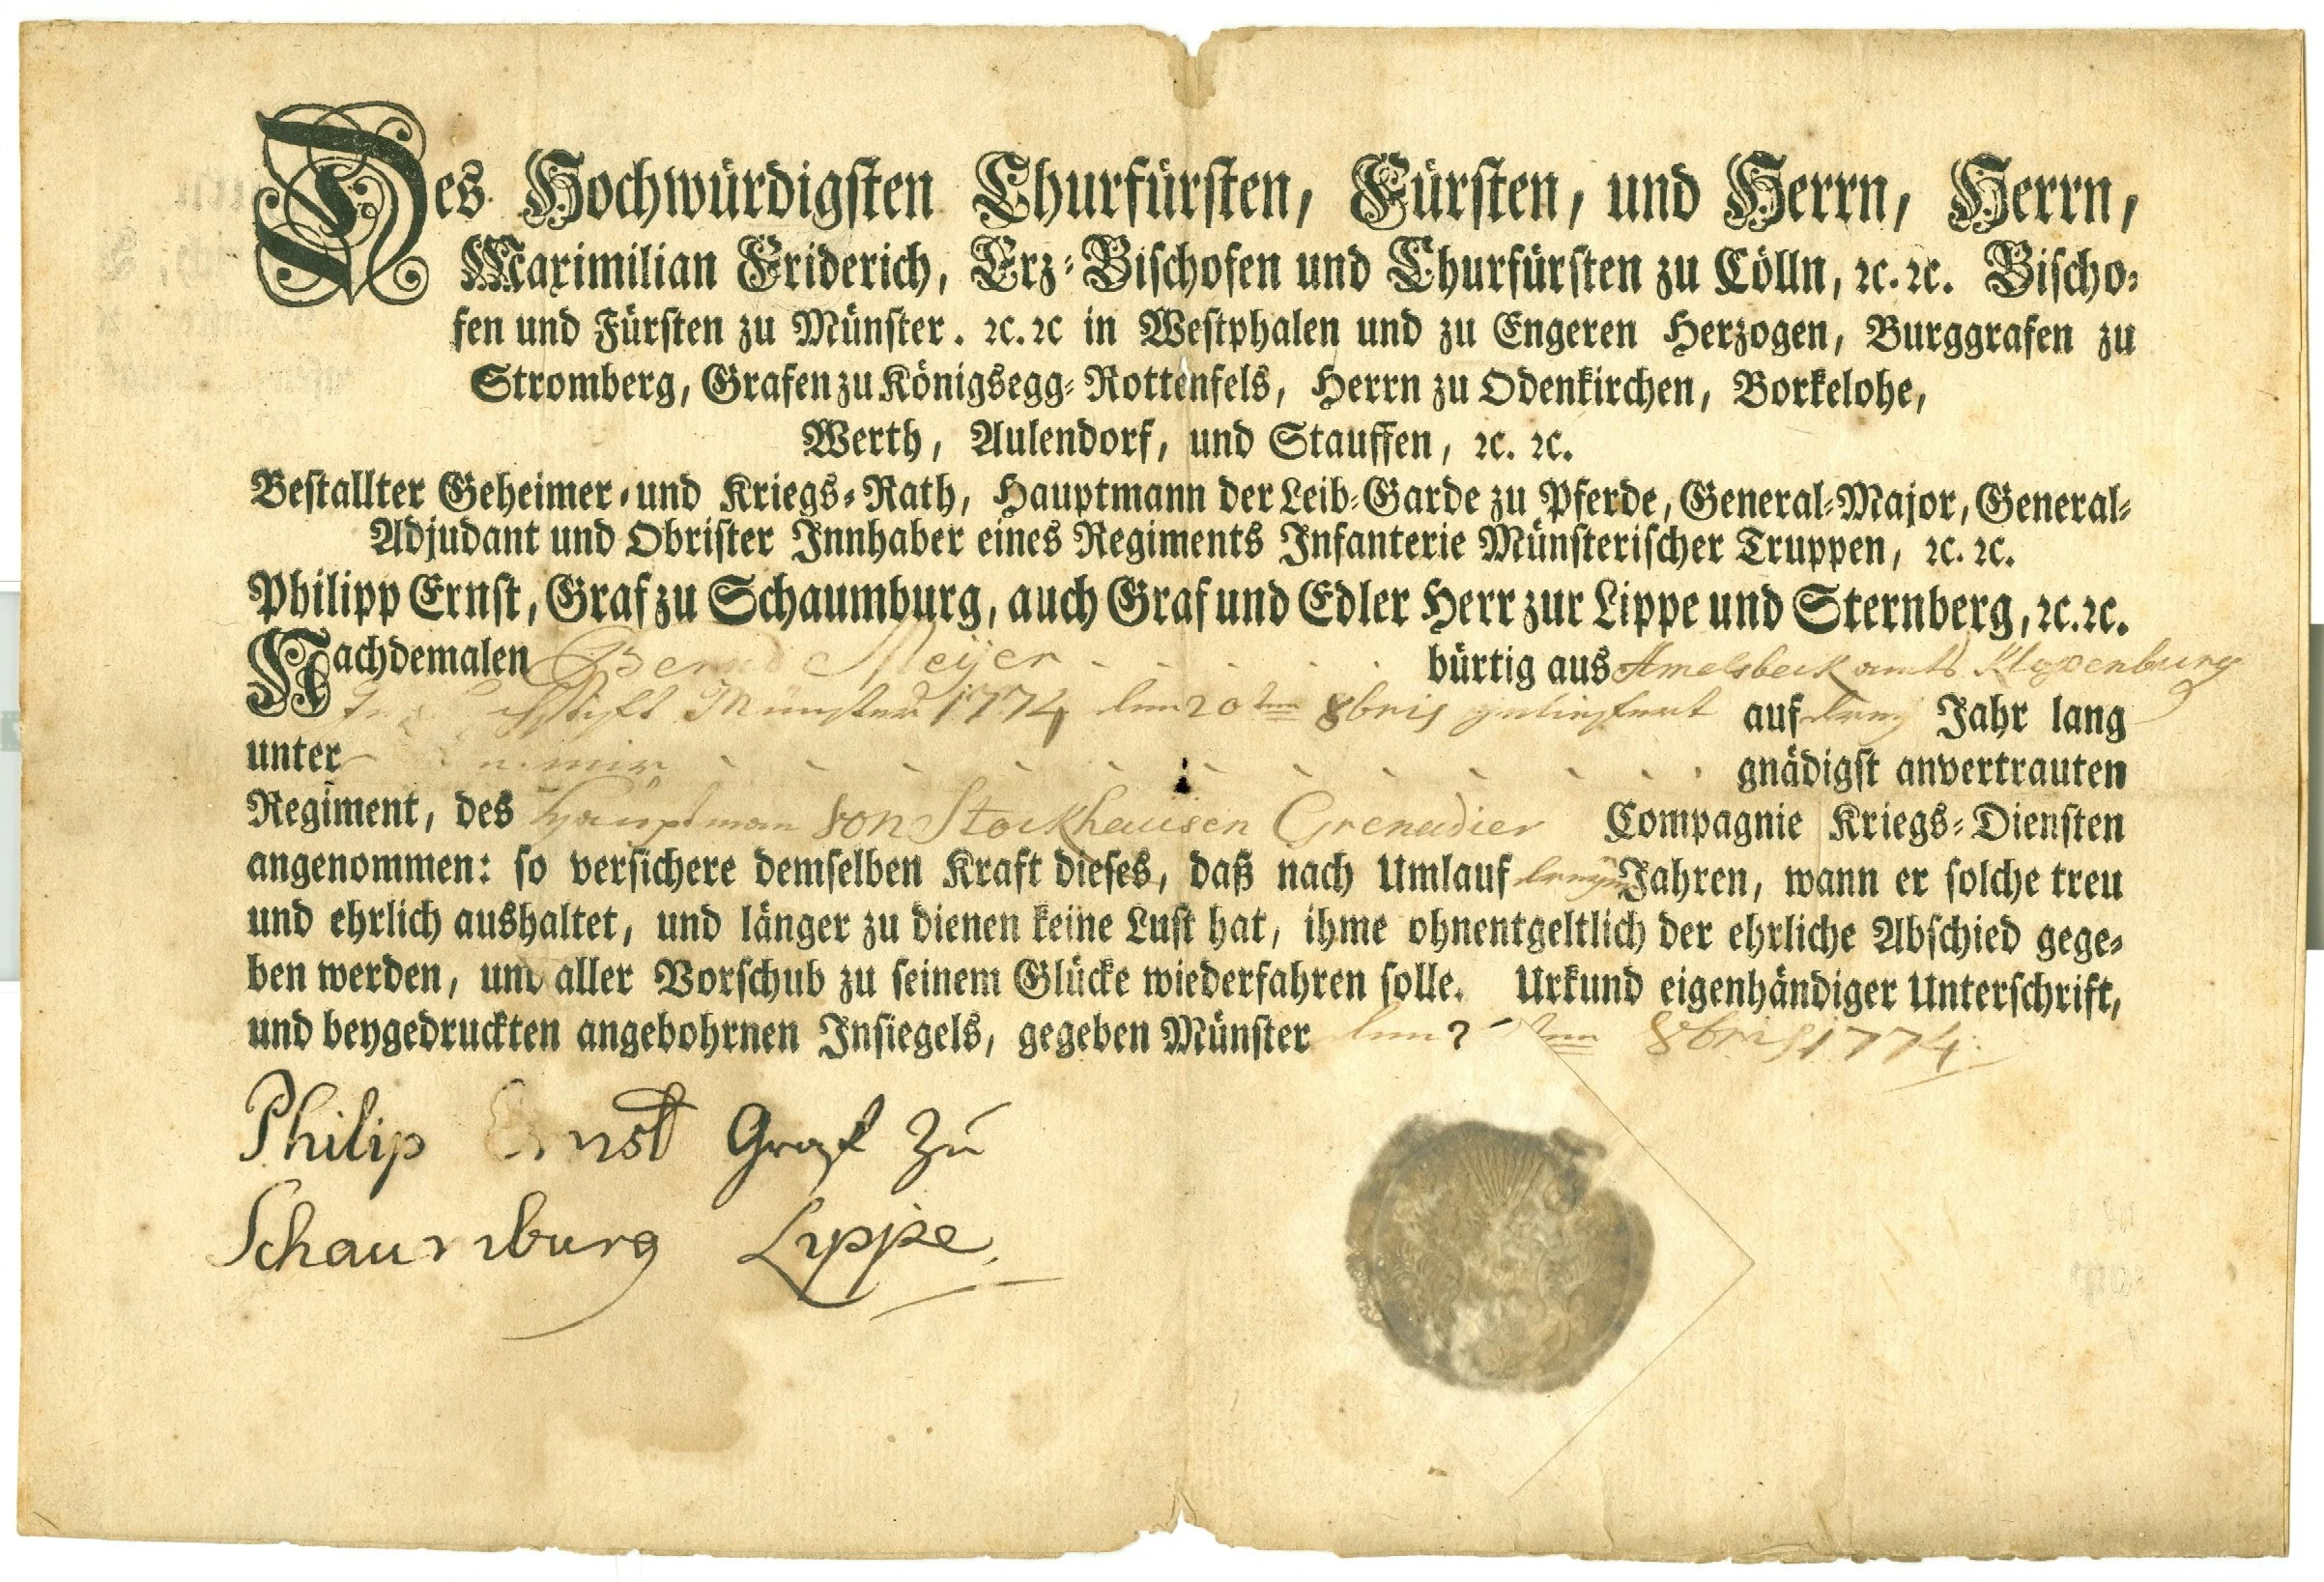 Des Hochwürdigsten Churfürsten, Fürsten, und Herrn, Herrn,
Maximilian Friderich, Erz-Bischofen und Churfürsten zu Cölln, ꝛc. ꝛc. Bischo-
fen und Fürsten zu Münster. ꝛc. ꝛc in Westphalen und zu Engeren Herzogen, Burggrafen zu
Stromberg, Grafen zu Königsegg-Rottenfels, Herrn zu Odenkirchen, Borkelohe,
Werth, Aulendorf, und Stauffen, ꝛc. ꝛc.
Bestallter Geheimer- und Kriegs-Rath, Hauptmann der Leib-Garde zu Pferde, General-Major, General-
Adjudant und Obrister Innhaber eines Regiments Infanterie Münsterischer Truppen, ꝛc. ꝛc.
Philipp Ernst, Graf zu Schaumburg, auch Graf und Edler Herr zur Lippe und Sternberg, ꝛc. ꝛc.
Nachdemalen Bernd Meijer bürtig aus Amelsbeck amts Klopenburg
Stift Münster 1774 den 20ten 8bris auf Jahr lang
unter mir gnädigst anvertrauten
Regiment, des Hauptman von Stockhausen Grenadier Compagnie Kriegs-Diensten
angenommen: so versichere demselben Kraft dieses, daß nach Umlauf Jahren, wann er solche treu
und ehrlich aushaltet, und länger zu dienen keine Lust hat, ihme ohnentgeltlich der ehrliche Abschied gege-
ben werden, und aller Vorschub zu seinem Glücke wiederfahren solle. Urkund eigenhändiger Unterschrift,
und beygedruckten angebohrnen Insiegels, gegeben Münster den 8bris 1774.
Philip Ernst Graf zu
Schaumburg Lippe.